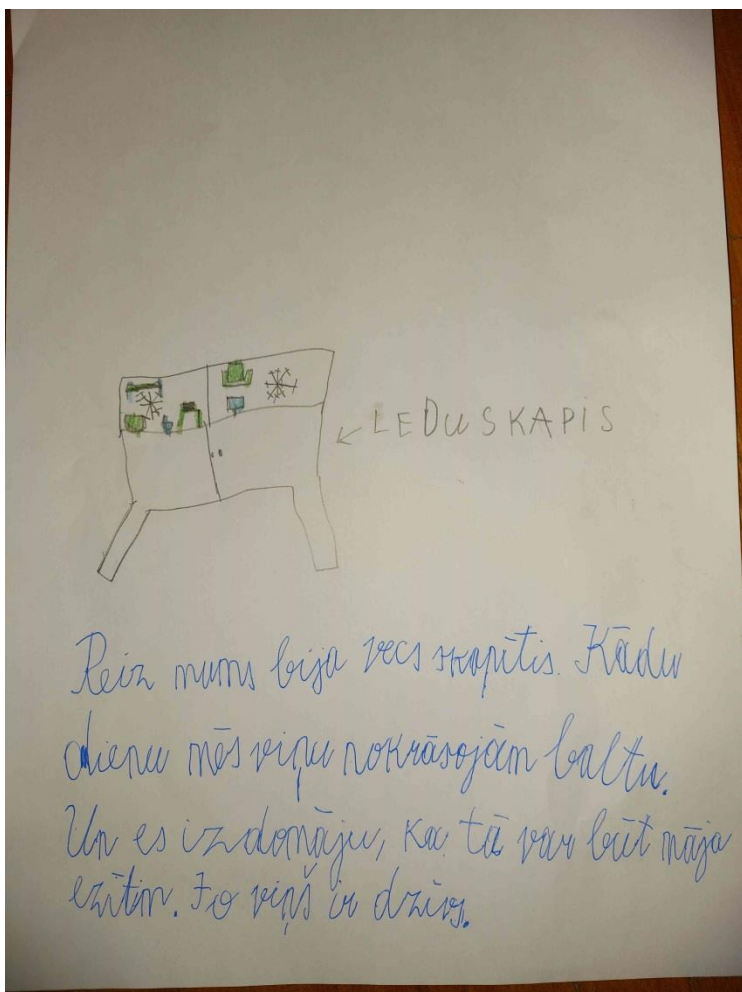 LEDUSKAPIS
Reiz mums bija vecs skapītis. Kādu
dienu mēs viņu nokrāsojām baltu.
Un es izdomāju, ka tā var būt māja
ezītim. Jo viņš ir dzīvs.